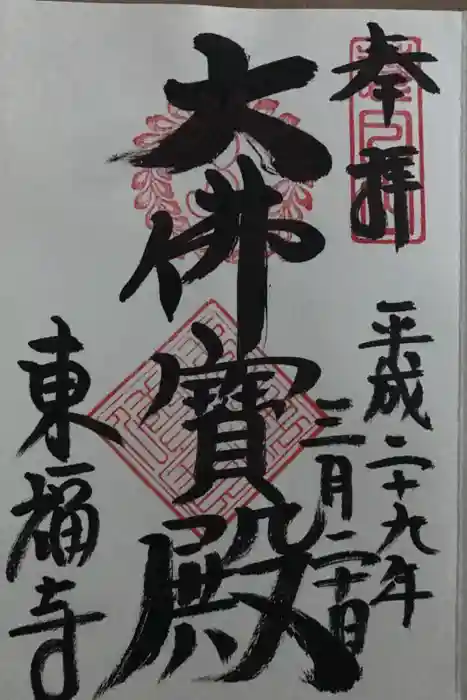 奉拝
平成二十九年
三月二十日
大佛寶殿
東福寺